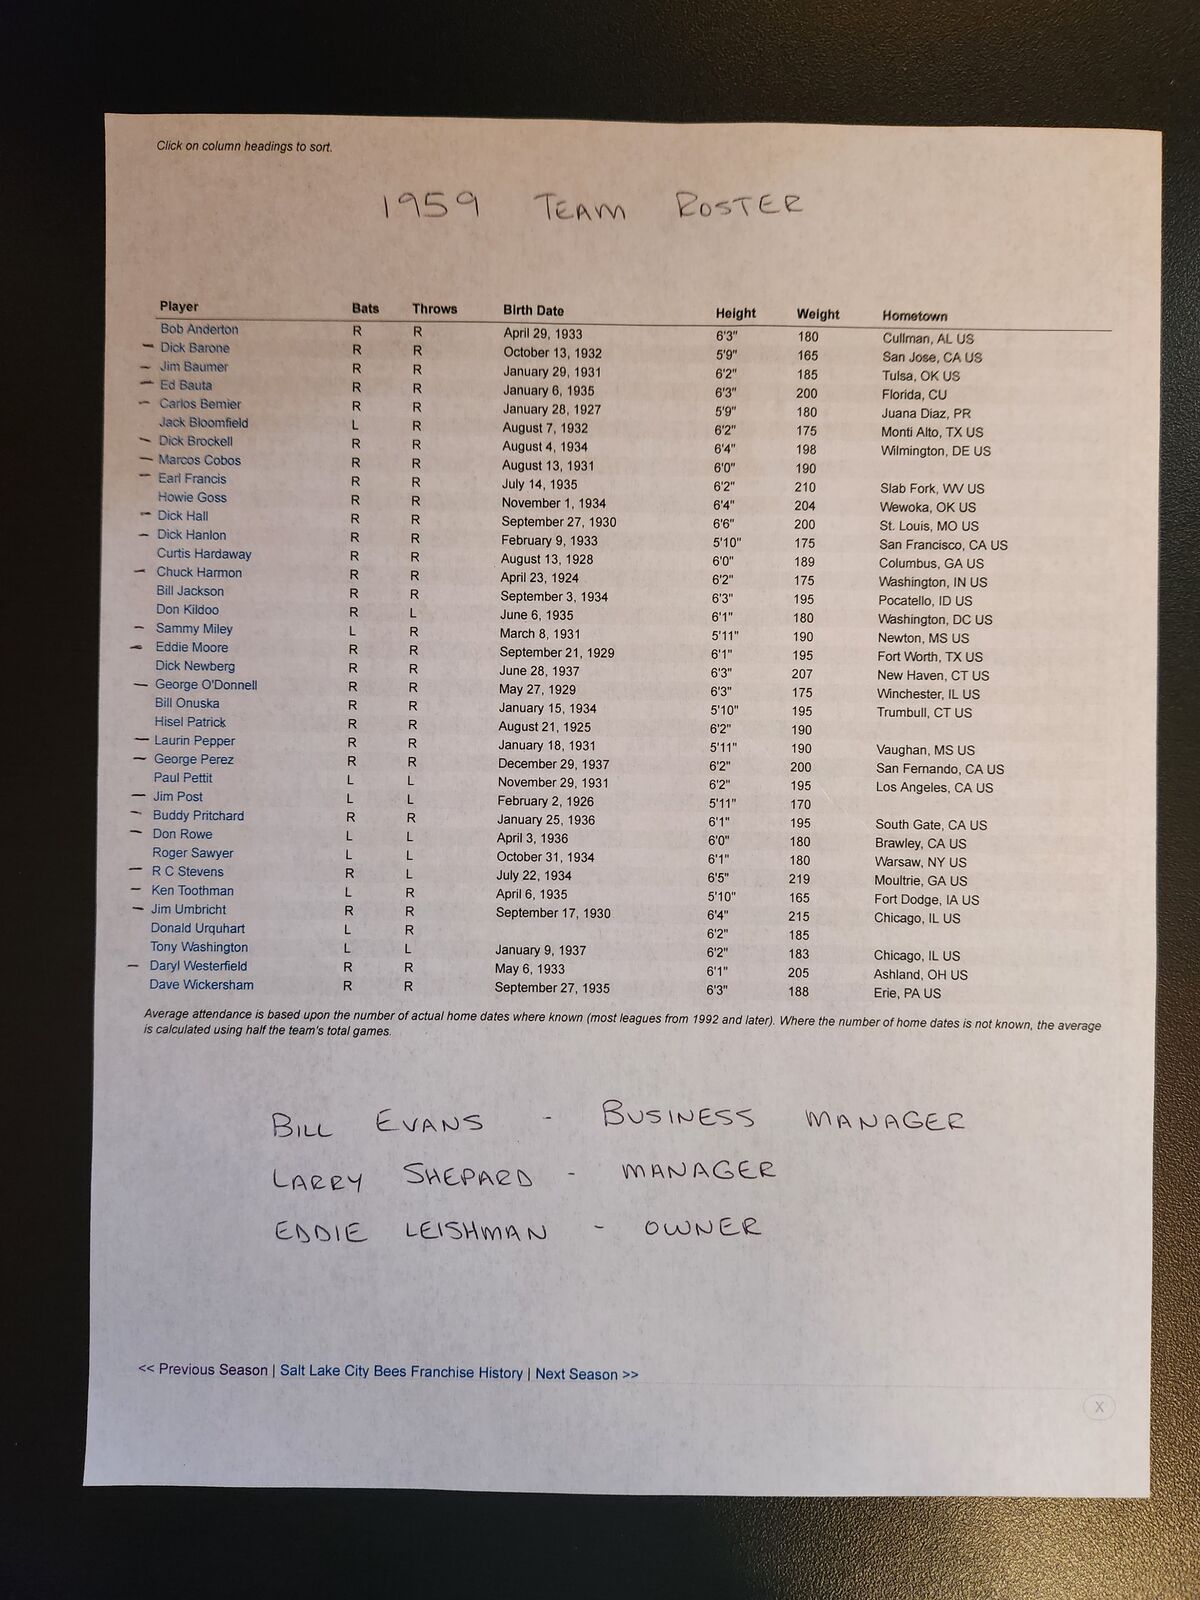 Click on column headings to sort.
1959 TEAM ROSTER
Player Bats Throws Birth Date Height Weight Hometown
Bob Anderton R R April 29, 1933 6'3" 180 Cullman, AL US
— Dick Barone R R October 13, 1932 5'9" 165 San Jose, CA US
— Jim Baumer R R January 29, 1931 6'2" 185 Tulsa, OK US
— Ed Bauta R R January 6, 1935 6'3" 200 Florida, CU
— Carlos Bernier R R January 28, 1927 5'9" 180 Juana Diaz, PR
Jack Bloomfield L R August 7, 1932 6'2" 175 Monti Alto, TX US
— Dick Brockell R R August 4, 1934 6'4" 198 Wilmington, DE US
— Marcos Cobos R R August 13, 1931 6'0" 190
— Earl Francis R R July 14, 1935 6'2" 210 Slab Fork, WV US
Howie Goss R R November 1, 1934 6'4" 204 Wewoka, OK US
— Dick Hall R R September 27, 1930 6'6" 200 St. Louis, MO US
— Dick Hanlon R R February 9, 1933 5'10" 175 San Francisco, CA US
Curtis Hardaway R R August 13, 1928 6'0" 189 Columbus, GA US
— Chuck Harmon R R April 23, 1924 6'2" 175 Washington, IN US
Bill Jackson R R September 3, 1934 6'3" 195 Pocatello, ID US
Don Kildoo R L June 6, 1935 6'1" 180 Washington, DC US
— Sammy Miley L R March 8, 1931 5'11" 190 Newton, MS US
— Eddie Moore R R September 21, 1929 6'1" 195 Fort Worth, TX US
Dick Newberg R R June 28, 1937 6'3" 207 New Haven, CT US
— George O'Donnell R R May 27, 1929 6'3" 175 Winchester, IL US
Bill Onuska R R January 15, 1934 5'10" 195 Trumbull, CT US
Hisel Patrick R R August 21, 1925 6'2" 190
— Laurin Pepper R R January 18, 1931 5'11" 190 Vaughan, MS US
— George Perez R R December 29, 1937 6'2" 200 San Fernando, CA US
Paul Pettit L L November 29, 1931 6'2" 195 Los Angeles, CA US
— Jim Post L L February 2, 1926 5'11" 170
— Buddy Pritchard R R January 25, 1936 6'1" 195 South Gate, CA US
— Don Rowe L L April 3, 1936 6'0" 180 Brawley, CA US
Roger Sawyer L L October 31, 1934 6'1" 180 Warsaw, NY US
— R C Stevens R L July 22, 1934 6'5" 219 Moultrie, GA US
— Ken Toothman L R April 6, 1935 5'10" 165 Fort Dodge, IA US
— Jim Umbricht R R September 17, 1930 6'4" 215 Chicago, IL US
Donald Urquhart L R 6'2" 185
Tony Washington L L January 9, 1937 6'2" 183 Chicago, IL US
— Daryl Westerfield R R May 6, 1933 6'1" 205 Ashland, OH US
Dave Wickersham R R September 27, 1935 6'3" 188 Erie, PA US
Average attendance is based upon the number of actual home dates where known (most leagues from 1992 and later). Where the number of home dates is not known, the average
is calculated using half the team's total games.
BILL EVANS - BUSINESS MANAGER
LARRY SHEPARD - MANAGER
EDDIE LEISHMAN - OWNER
<< Previous Season | Salt Lake City Bees Franchise History | Next Season >>
X